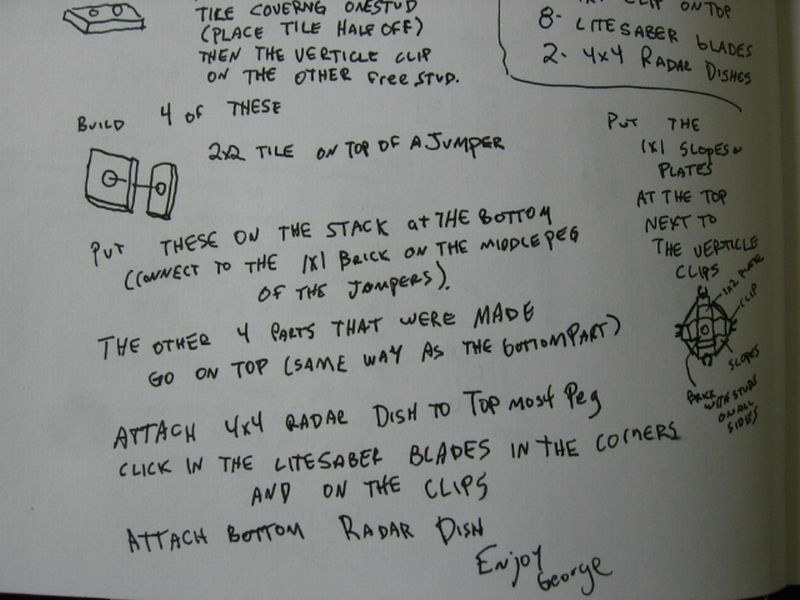 TILE COVERNG ONE STUD
(PLACE TILE HALF OFF)
THEN THE VERTICLE CLIP
ON THE OTHER Free STUD.
CLIP ON TOP
8- LITESABER blADES
2- 4x4 RADAR DISHES
BUILD 4 of THESE
2x2 TILE ON TOP OF A JUMPER
PUT THESE ON THE STACK at THE BOTTOM
(CONNECT TO THE 1X1 BRICK ON THE MIDDLE PEG
OF THE JUMPERS).
THE OTHER 4 PARTS THAT WERE MADE
GO ON TOP (SAME WAY AS THE BOTTOM PART)
ATTACH 4x4 RADAR DISH TO TOP MOST Peg
CLICK IN THE LITESABER BLADES IN THE CORNERS
AND ON THE CLIPS
ATTACH BOTTOM RADAR DISH
ENJOY
George
PUT THE
1X1 SLOPES
PLATES
AT THE TOP
NEXT TO
THE VERTICLE
CLIPS
1x2 PLATE
CLIP
SLOPES
BRICK
WITH STUDS
ON ALL
SIDES